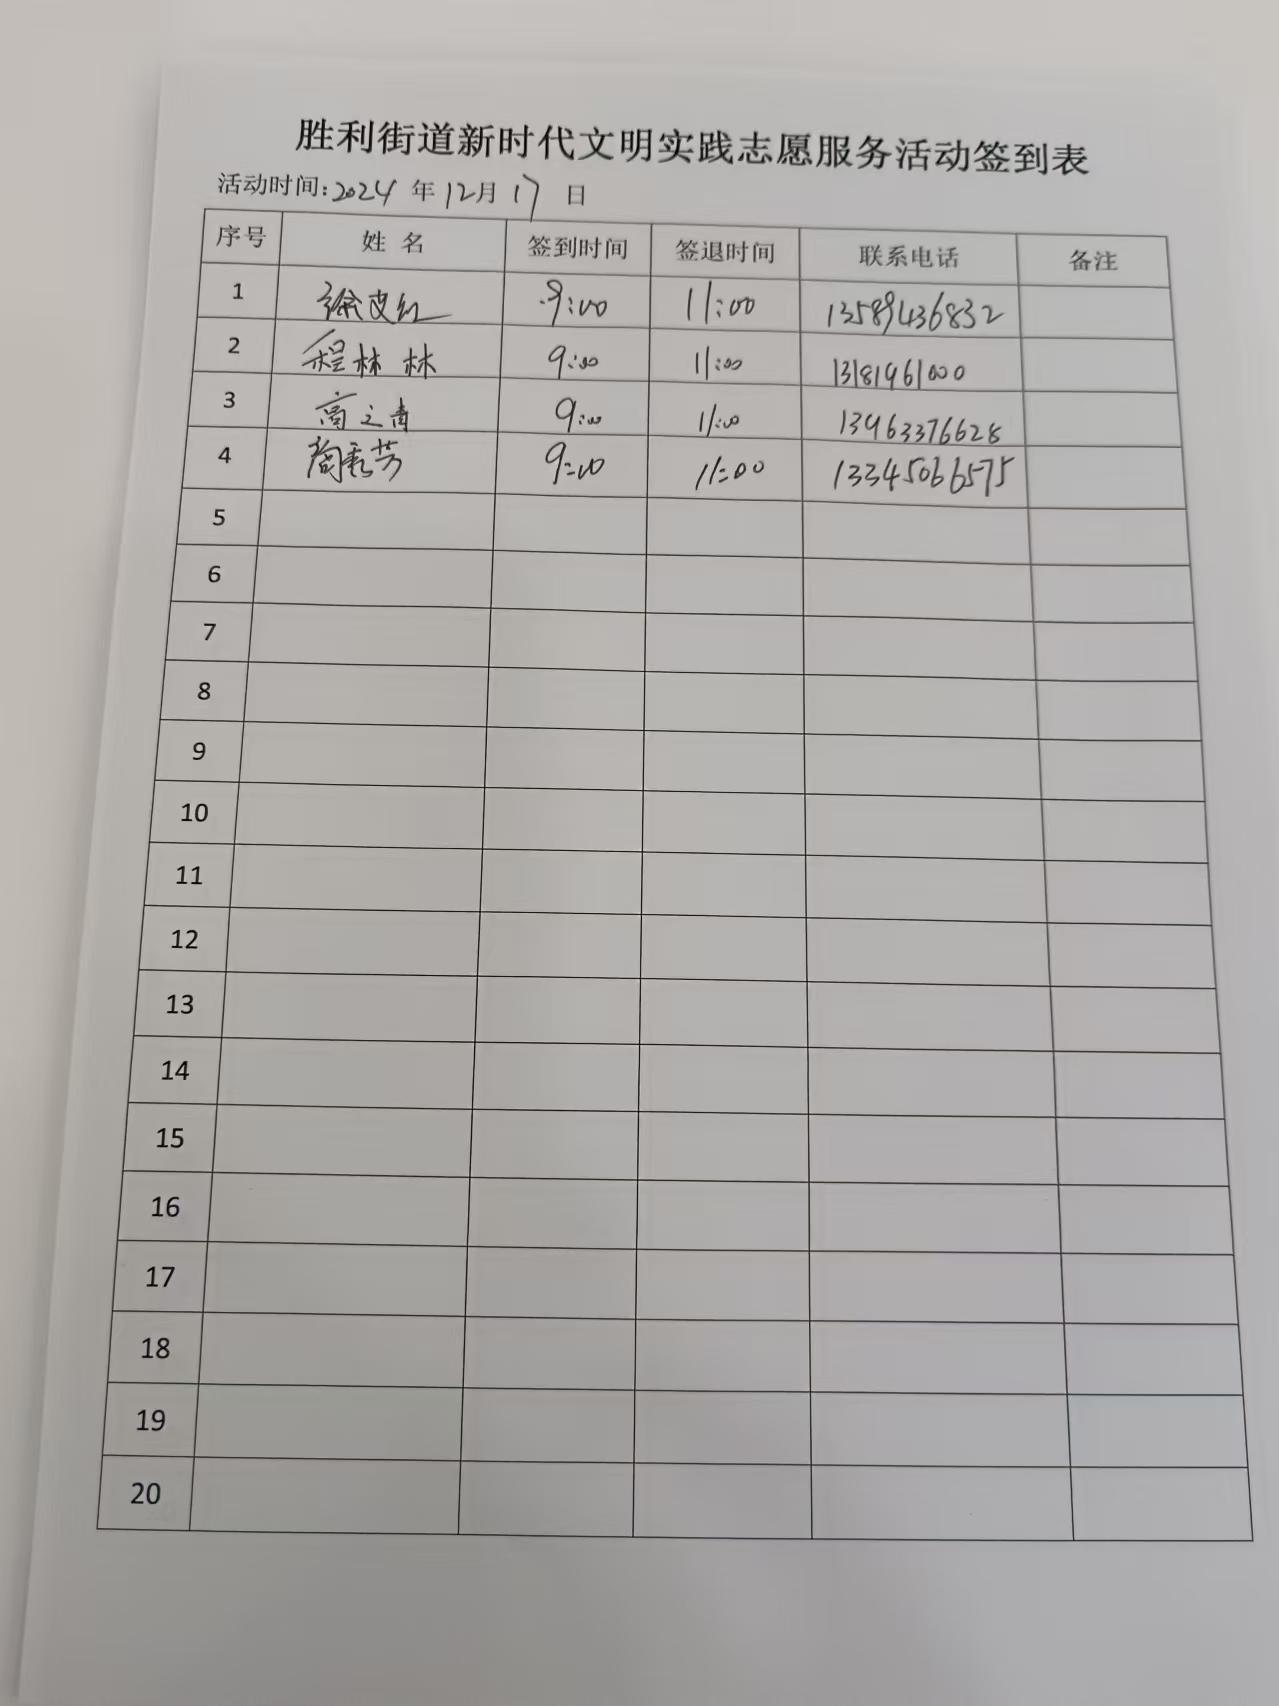 胜利街道新时代文明实践志愿服务活动签到表
活动时间:2024 年 12月 17 日
序号 姓 名 签到时间 签退时间 联系电话 备注
1 徐 红 9:00 11:00 13589436832
2 程林林 9:00 11:00 13181961000
3 高之青 9:00 11:00 13963376628
4 秀芳 9:00 11:00 13345066575
5
6
7
8
9
10
11
12
13
14
15
16
17
18
19
20